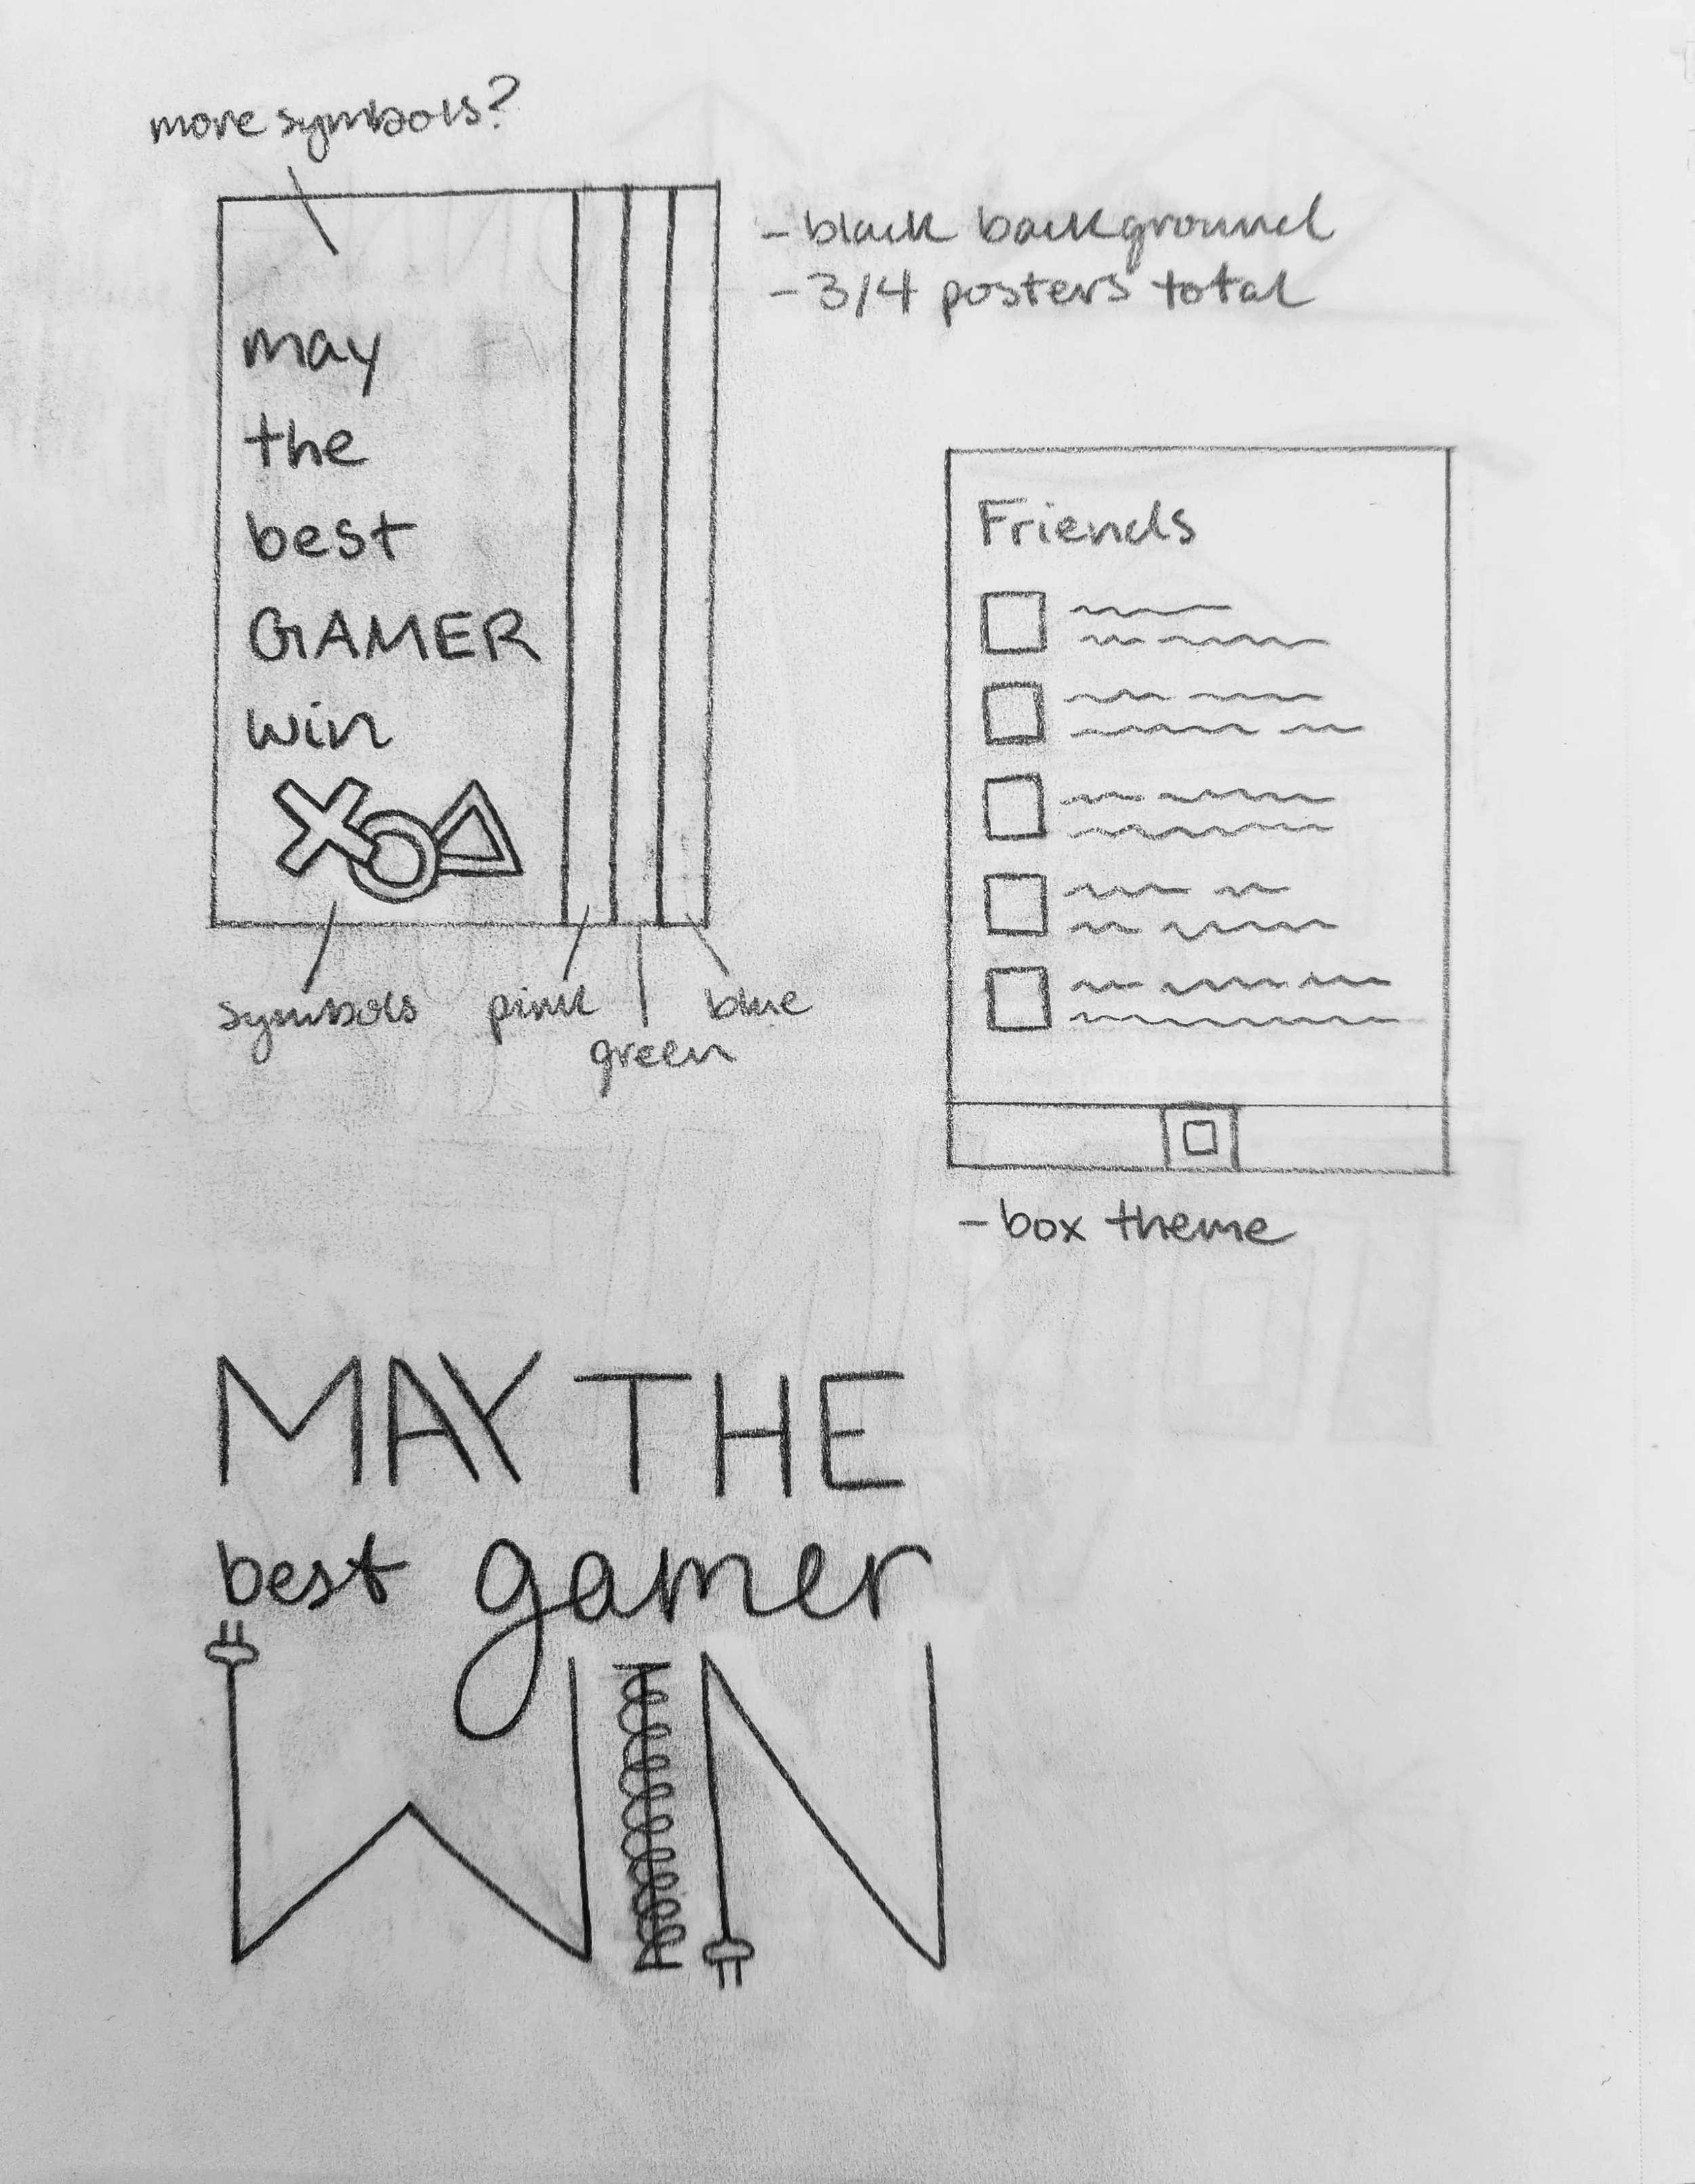 more symbols?
- black background
- 3/4 posters total
may
the
best
GAMER
win
symbols
pink
green
blue
Friends
- box theme
MAY THE
best gamer
WIN